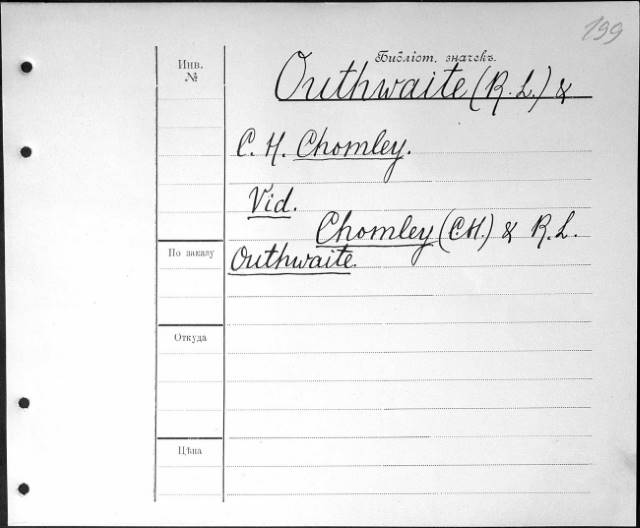 199
Библіот. значекъ.
Инв.
№
Outhwaite (R. L.) &
C. H. Chomley.
Vid.
Chomley (C.H.) & R. L.
Outhwaite.
По заказу
Откуда
Цѣна